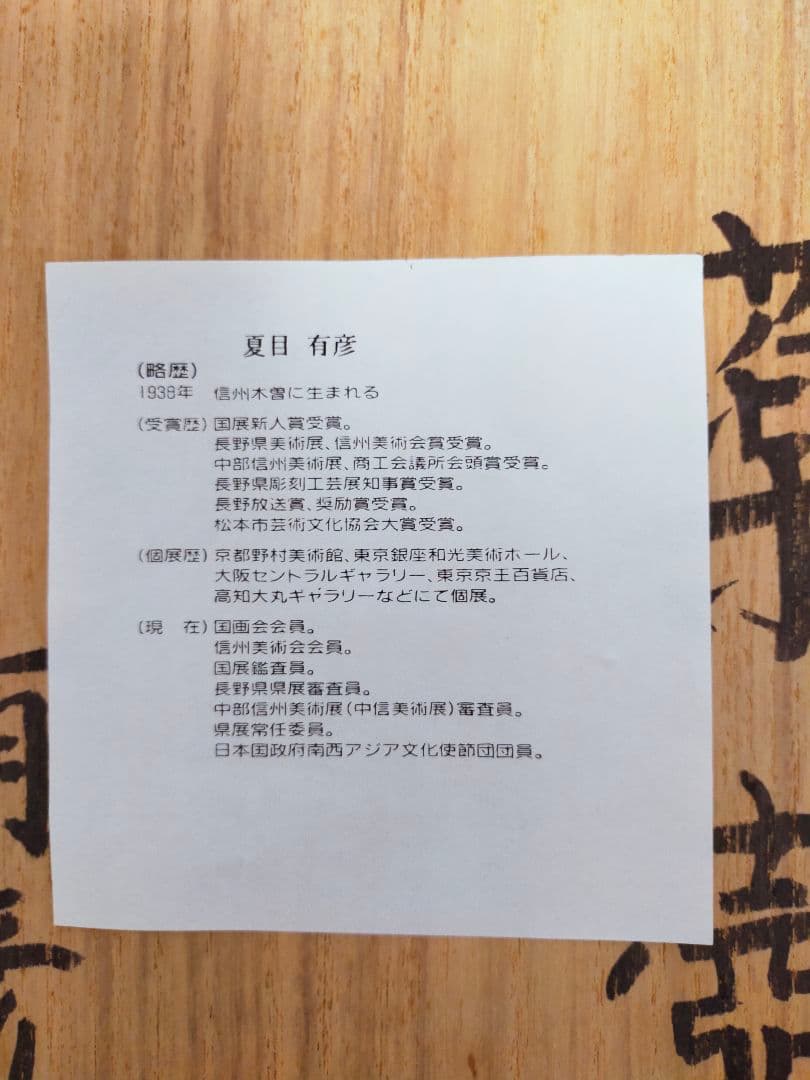 夏目 有彦
(略歴)
1938年 信州木曽に生まれる
(受賞歴) 国展新人賞受賞。
長野県美術展、信州美術会賞受賞。
中部信州美術展、商工会議所会頭賞受賞。
長野県彫刻工芸展知事賞受賞。
長野放送賞、奨励賞受賞。
松本市芸術文化協会大賞受賞。
(個展歴) 京都野村美術館、東京銀座和光美術ホール、
大阪セントラルギャラリー、東京京王百貨店、
高知大丸ギャラリーなどにて個展。
(現 在) 国画会会員。
信州美術会会員。
国展鑑査員。
長野県県展審査員。
中部信州美術展(中信美術展)審査員。
県展常任委員。
日本国政府南西アジア文化使節団団員。